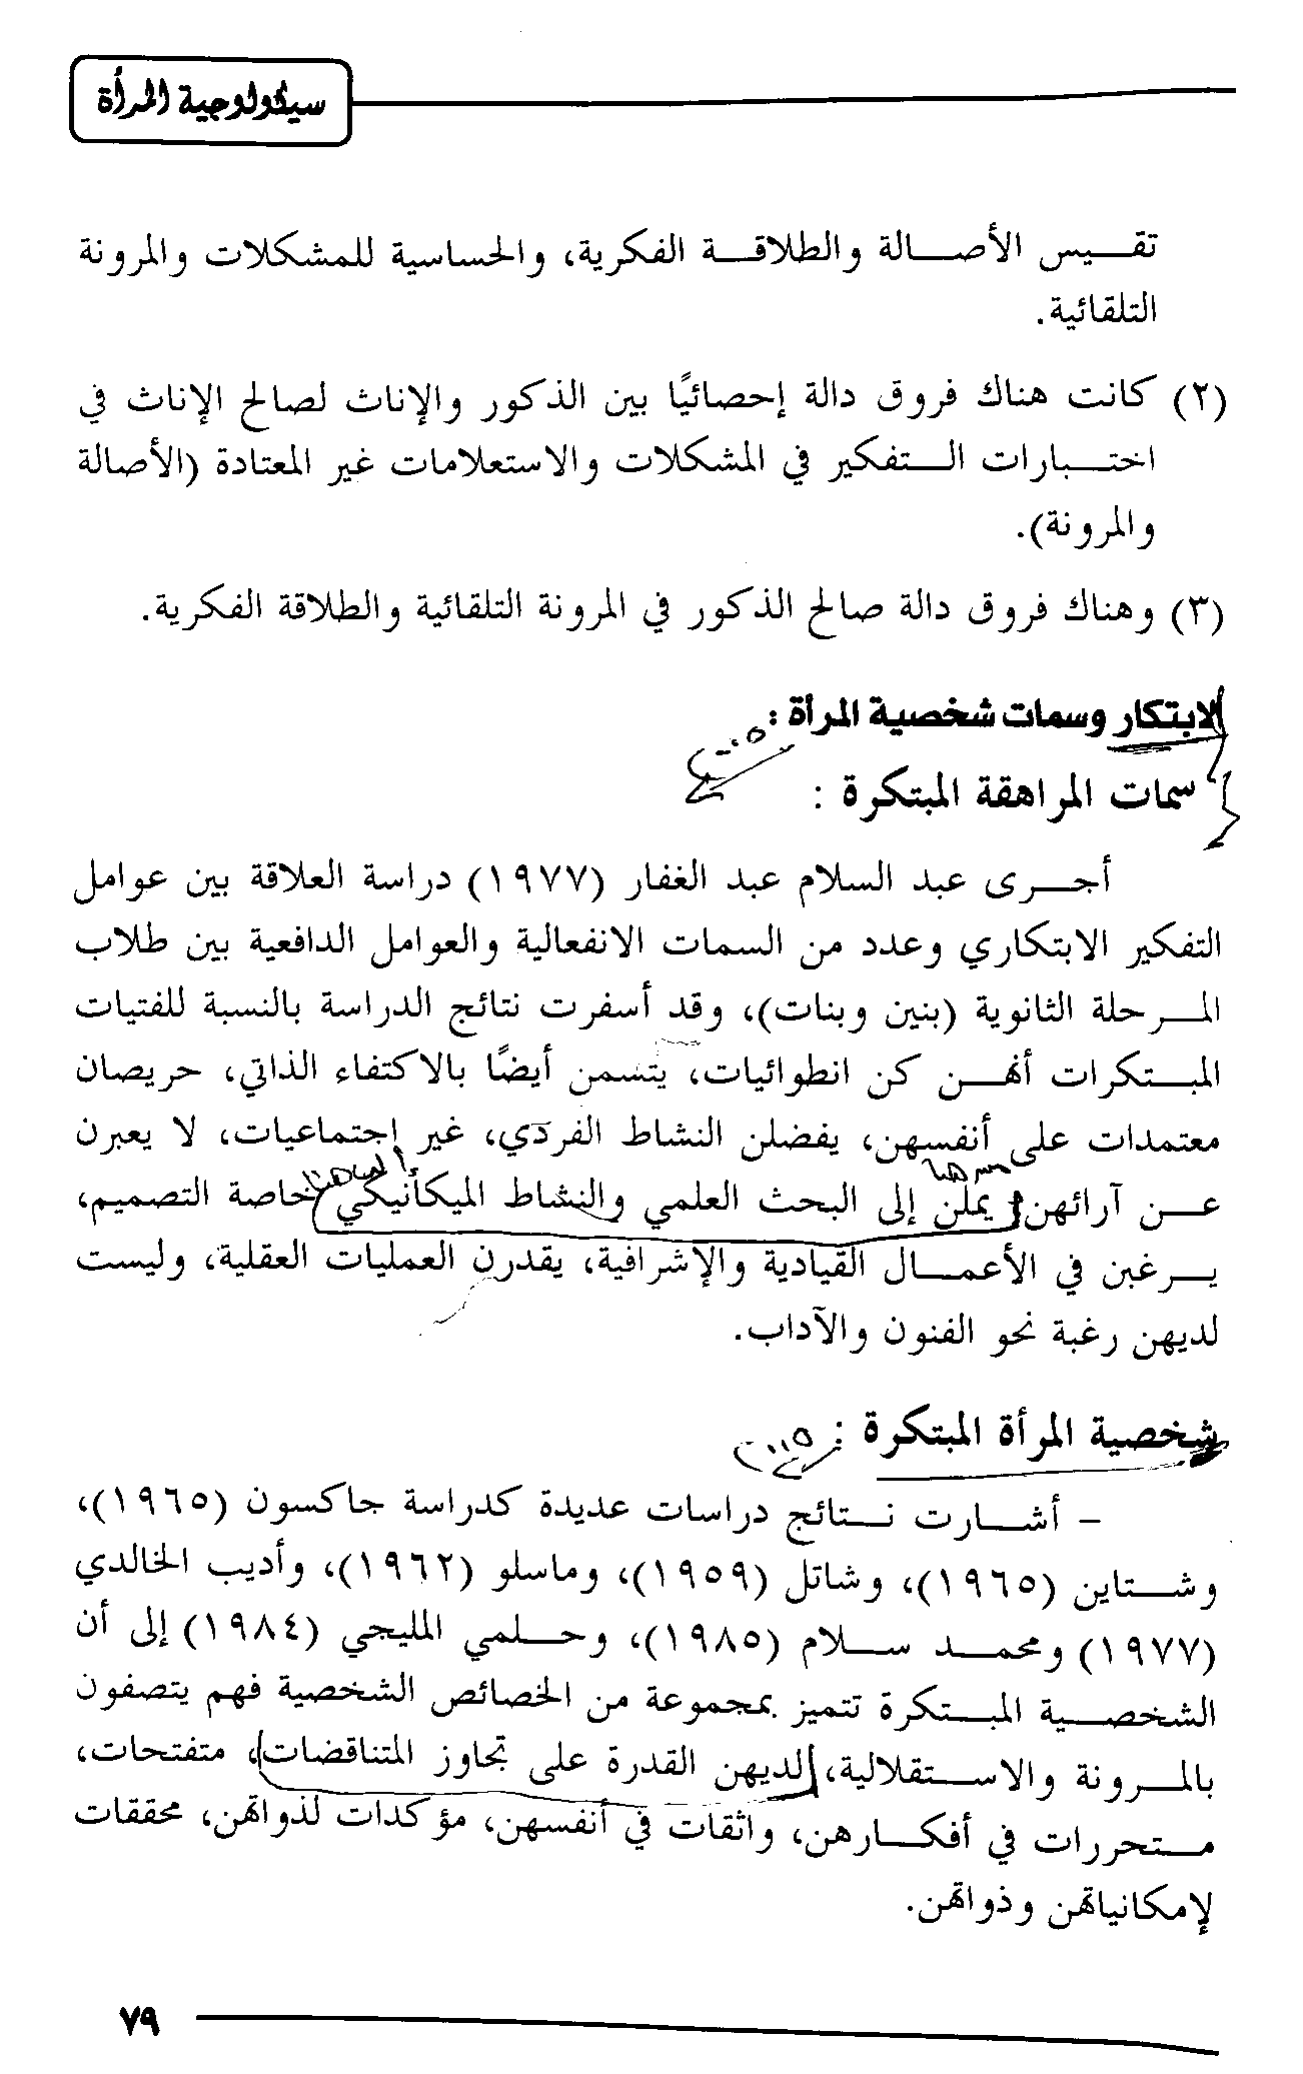 سيكولوجية المرأة
تقـــيس الأصـــالة والطلاقـــة الفكرية، والحساسية للمشكلات والمرونة
التلقائية.
(٢) كانت هناك فروق دالة إحصائيًا بين الذكور والإناث لصالح الإناث في
اختـــبارات الـــتفكير في المشكلات والاستعلامات غير المعتادة (الأصالة
والمرونة).
(٣) وهناك فروق دالة صالح الذكور في المرونة التلقائية والطلاقة الفكرية.
الابتكار وسمات شخصية المرأة :
سمات المراهقة المبتكرة :
أجـــرى عبد السلام عبد الغفار (١٩٧٧) دراسة العلاقة بين عوامل
التفكير الابتكاري وعدد من السمات الانفعالية والعوامل الدافعية بين طلاب
المـــرحلة الثانوية (بنين وبنات)، وقد أسفرت نتائج الدراسة بالنسبة للفتيات
المبـــتكرات أنهـــن كن انطوائيات، يتسمن أيضًا بالاكتفاء الذاتي، حريصان
معتمدات على أنفسهن، يفضلن النشاط الفردي، غير اجتماعيات، لا يعبرن
عـــن آرائهن، يملن إلى البحث العلمي والنشاط الميكانيكي خاصة التصميم،
يـــرغبن في الأعمـــال القيادية والإشرافية، يقدرن العمليات العقلية، وليست
لديهن رغبة نحو الفنون والآداب.
شخصية المرأة المبتكرة :
– أشـــارت نـــتائج دراسات عديدة كدراسة جاكسون (١٩٦٥)،
وشـــتاين (١٩٦٥)، وشاتل (١٩٥٩)، وماسلو (١٩٦٢)، وأديب الخالدي
(١٩٧٧) ومحمـــد ســـلام (١٩٨٥)، وحـــلمي المليجي (١٩٨٤) إلى أن
الشخصـــية المبـــتكرة تتميز بمجموعة من الخصائص الشخصية فهم يتصفون
بالمـــرونة والاســـتقلالية، لديهن القدرة على تجاوز المتناقضات، متفتحات،
مـــتحررات في أفكـــارهن، واثقات في أنفسهن، مؤكدات لذواتهن، محققات
لإمكانياتهن وذواتهن.
٧٩